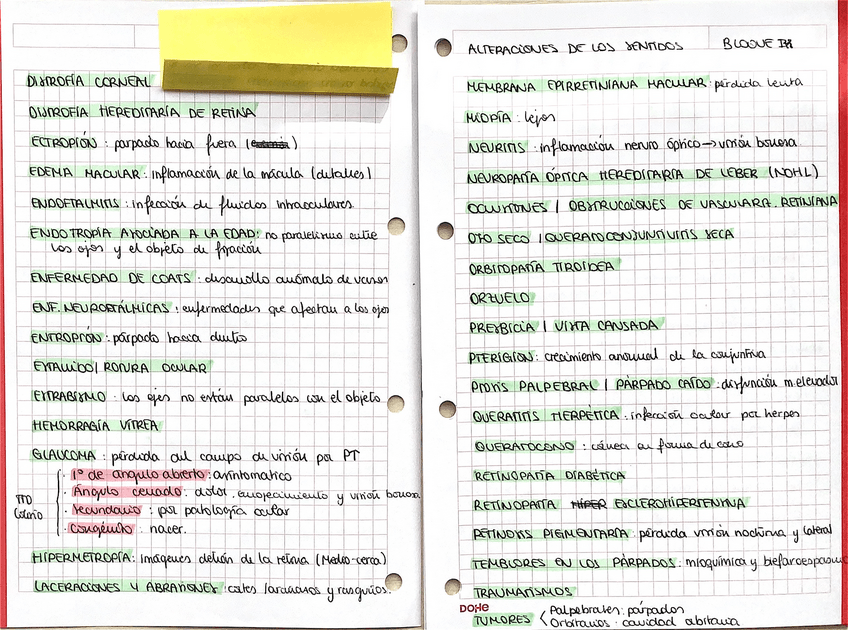 DISTROFÍA CORNEAL
DISTROFIA HEREDITARÍA DE RETINA
ECTROPIÓN : parpado hacia fuera ( )
EDEMA MACULAR : inflamación de la mácula (detalles)
ENDOFTALMITIS : infección de fluidos intraoculares
ENDOTROPÍA ASOCIADA A LA EDAD: no paralelismo entre
los ojos y el objeto de fijación
ENFERMEDAD DE COATS : desarrollo anómalo de vasos
ENF. NEUROFTÁLMICAS : enfermedades que afectan a los ojos
ENTROPIÓN : párpado hacia dentro
ESTALLIDO / ROTURA OCULAR
ESTRABISMO : los ojos no están paralelos con el objeto
HEMORRAGÍA VÍTREA
GLAUCOMA : pérdida del campo de visión por PT
· 1º de angulo abierto : asintomático
· Ángulo cerrado : dolor, enrojecimiento y visión borrosa
· Secundario : por patología ocular
· Congénito : nacer.
TTO
Colirio
HIPERMETROPÍA : imágenes detrás de la retina (Miedo-cerca)
LACERACIONES Y ABRASIONES : cortes / arañazos y rasguños.
ALTERACIONES DE LOS SENTIDOS BLOQUE
MEMBRANA EPIRRETINIANA MACULAR : pérdida lenta
MIOPÍA : lejos
NEURITIS : inflamación nervio óptico → visión borrosa
NEUROPATÍA ÓPTICA HEREDITARÍA DE LEBER (NOHL)
OCLUSIONES / OBSTRUCCIONES DE VASCULARA. RETINIANA
OJO SECO / QUERATOCONJUNTIVITIS SECA
ORBITOPATÍA TIROIDEA
ORZUELO
PRESBICIA / VISTA CANSADA
PTERIGIÓN : crecimiento anormal de la conjuntiva
PTOSIS PALPEBRAL / PÁRPADO CAÍDO : disfunción m. elevador
QUERATITIS HERPÉTICA : infección ocular por herpes
QUERATOCONO : córnea en forma de cono
RETINOPATÍA DIABÉTICA
RETINOPATÍA HIPER ESCLEROHIPERTENSIVA
RETINOSIS PIGMENTARIA : pérdida visión nocturna y lateral
TEMBLORES EN LOS PÁRPADOS : mioquímica y blefaroespasmo
TRAUMATISMOS
DOHE
TUMORES < Palpebrales : párpados
Orbitarios : cavidad orbitaria